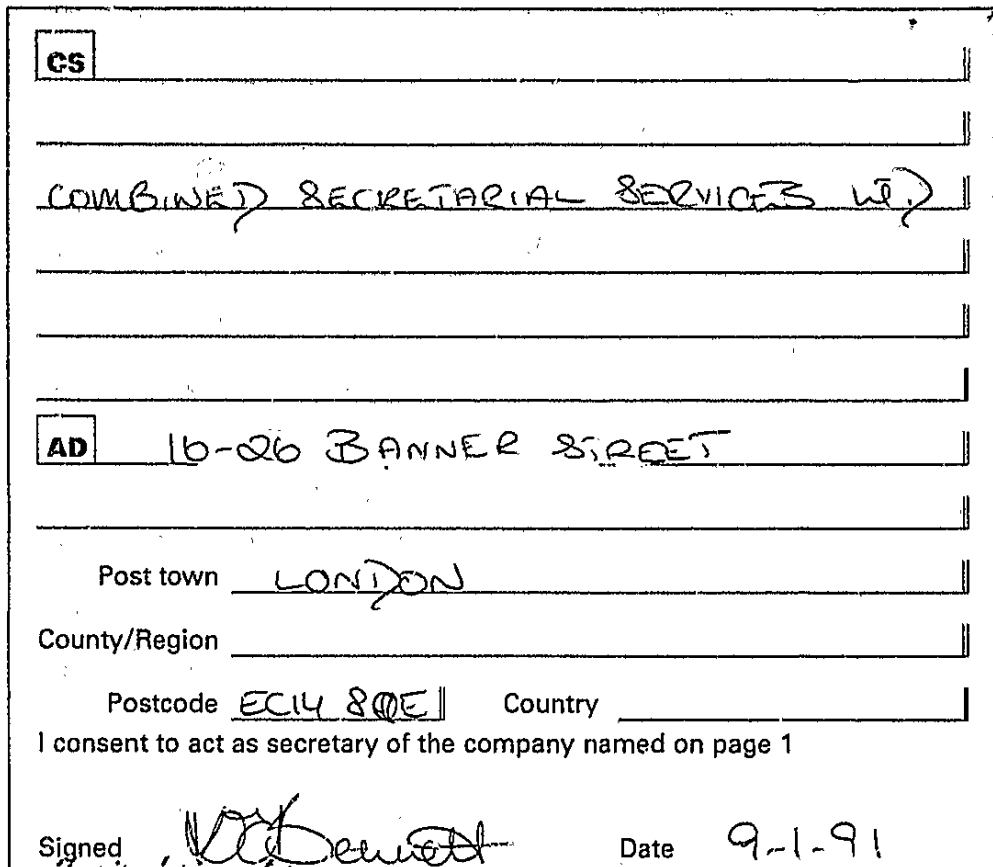 CS
COMBINED SECRETARIAL SERVICES LTD
AD 16-26 BANNER STREET
Post town LONDON
County/Region
Postcode EC1Y 8QE Country
I consent to act as secretary of the company named on page 1
Signed Date 9-1-91